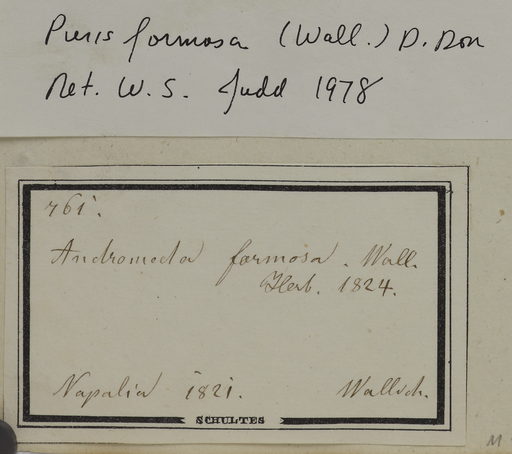 Pieris formosa (Wall.) D. Don
Det. W. S. Judd 1978
761.
Andromeda formosa. Wall.
Herb. 1824.
Napalia 1821. Wallich.
SCHULTES
M